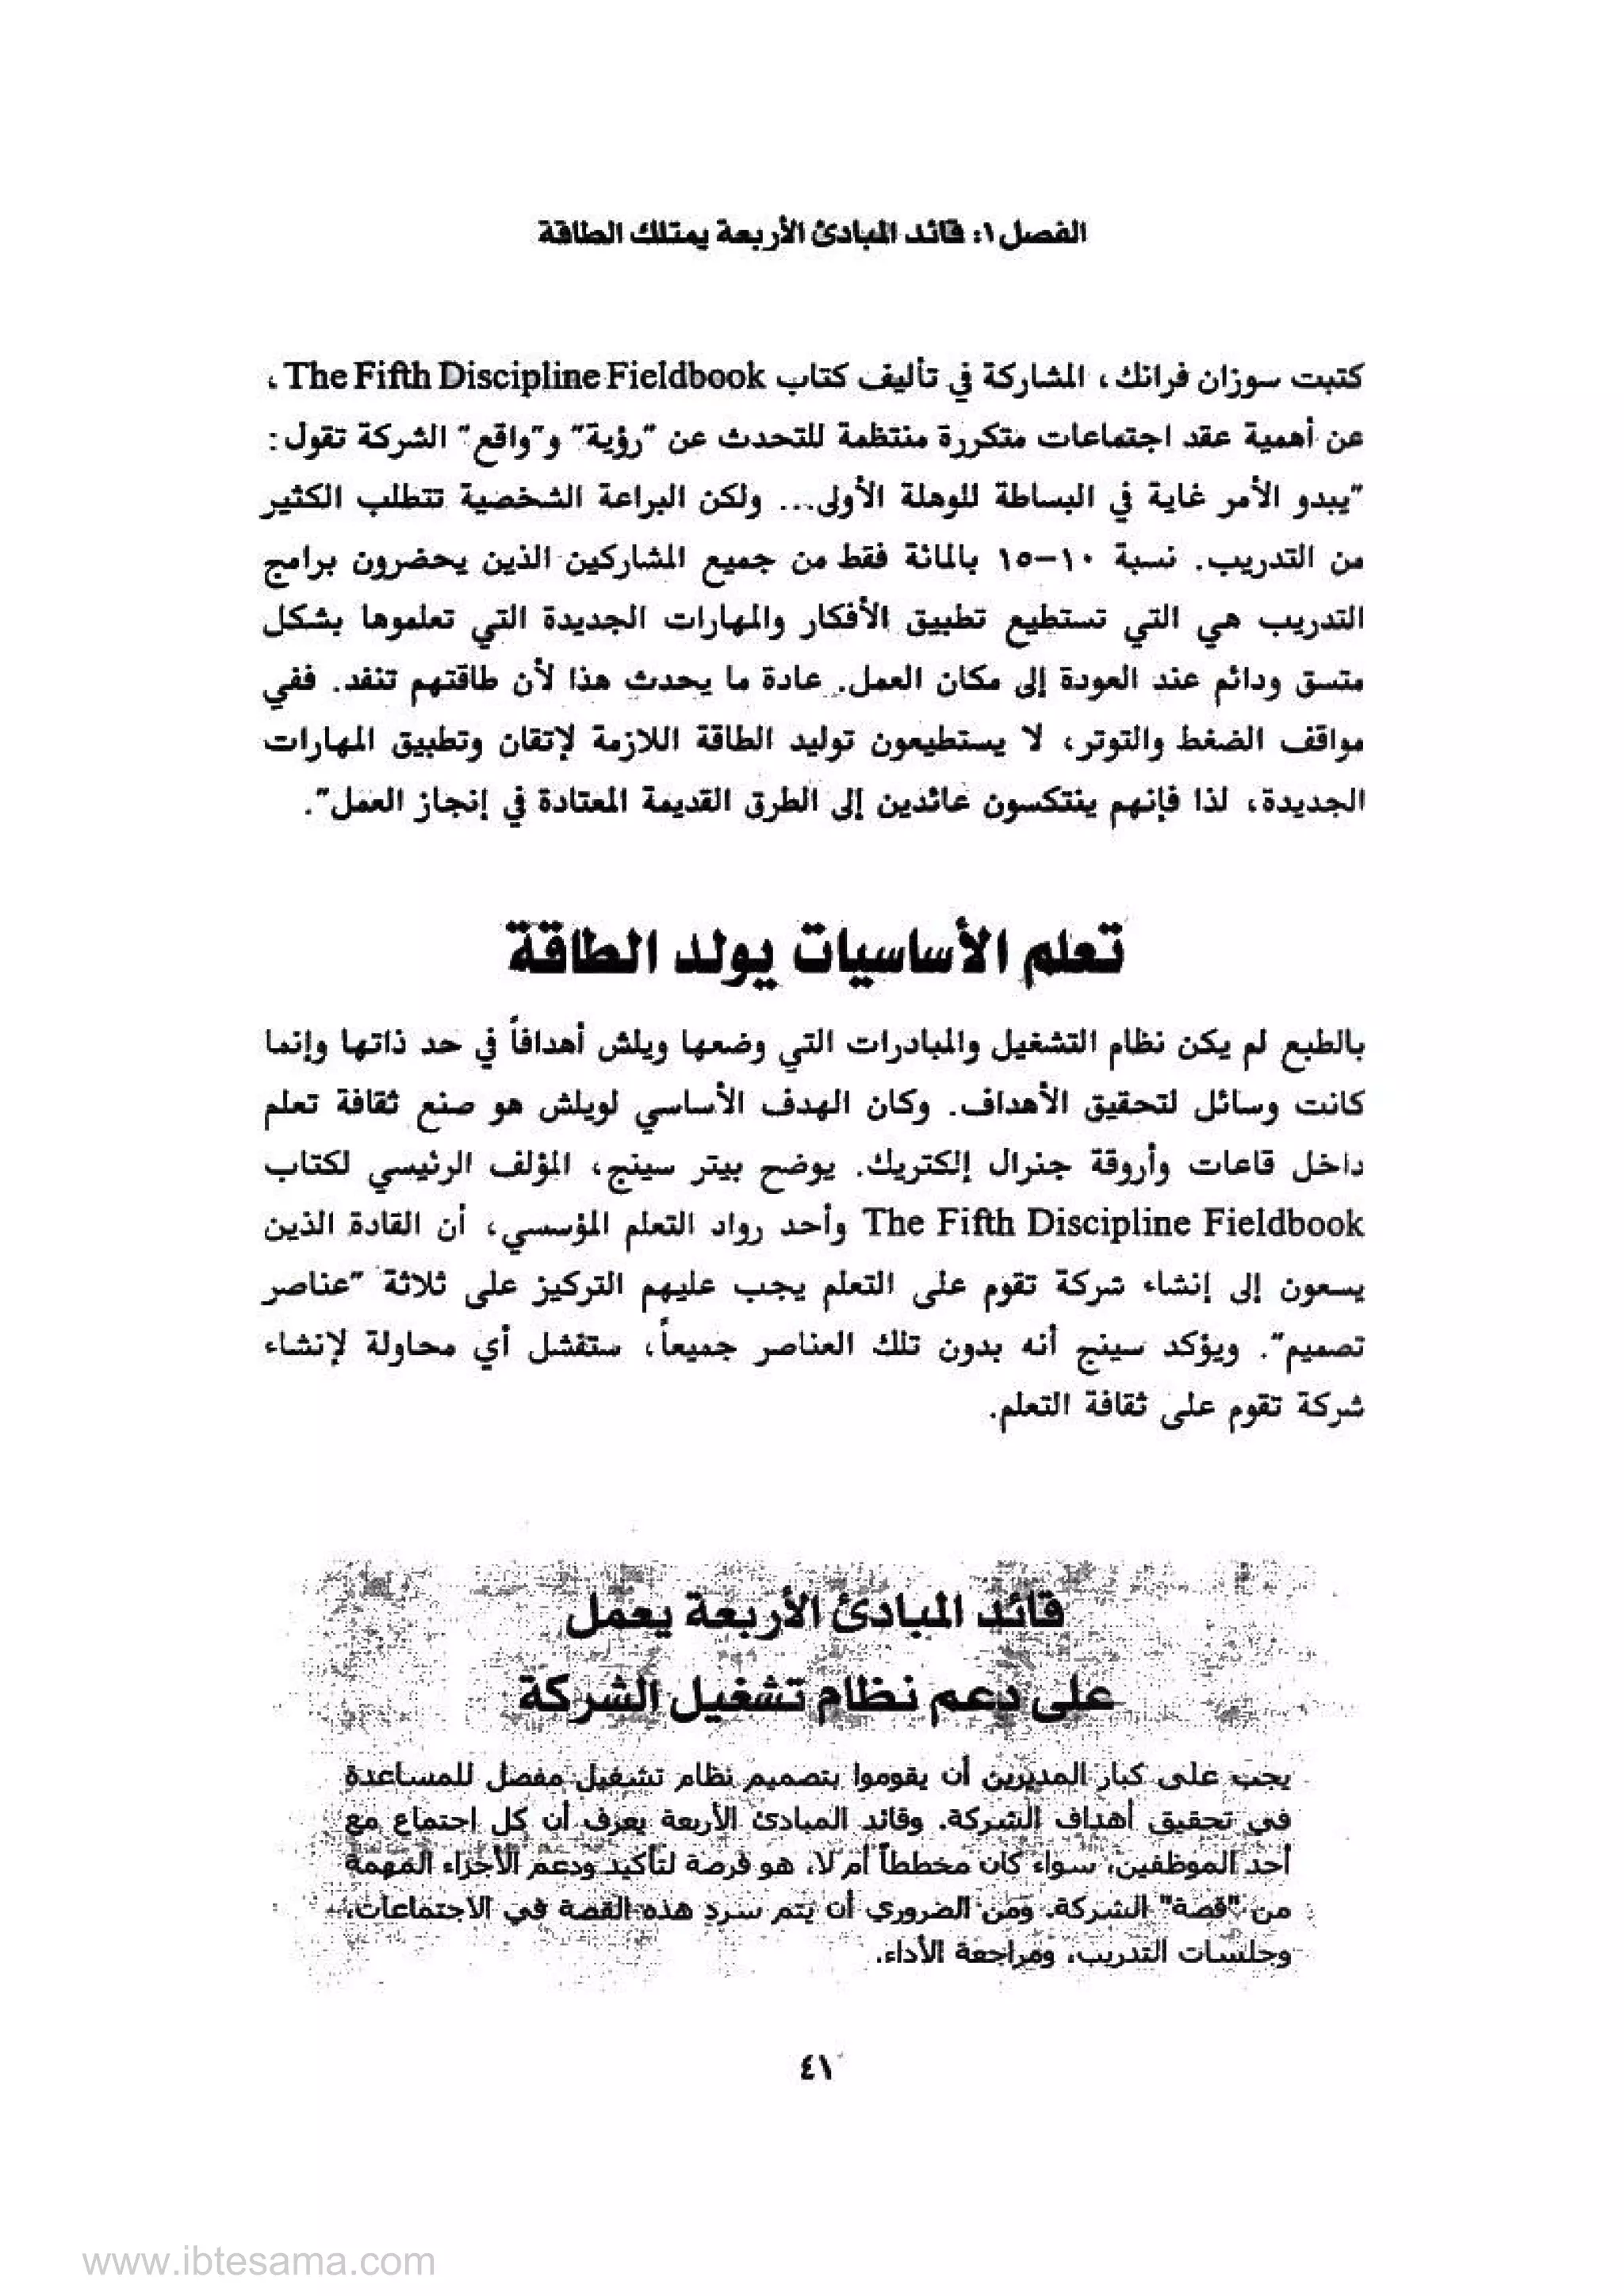 الفصل ١: قائد المبادئ الأربعة يمتلك الطاقة
كتبت سوزان فرانك، المشاركة في تأليف كتاب The Fifth Discipline Fieldbook،
عن أهمية عقد اجتماعات متكررة منتظمة للتحدث عن "رؤية" و"واقع" الشركة تقول:
"يبدو الأمر غاية في البساطة للوهلة الأولى... ولكن البراعة الشخصية تتطلب الكثير
من التدريب. نسبة ١٠–١٥ بالمائة فقط من جميع المشاركين الذين يحضرون برامج
التدريب هي التي تستطيع تطبيق الأفكار والمهارات الجديدة التي تعلموها بشكل
متسق ودائم عند العودة إلى مكان العمل. عادة ما يحدث هذا لأن طاقتهم تنفد. ففي
مواقف الضغط والتوتر، لا يستطيعون توليد الطاقة اللازمة لإتقان وتطبيق المهارات
الجديدة، لذا فإنهم ينتكسون عائدين إلى الطرق القديمة المعتادة في إنجاز العمل".
تعلم الأساسيات يولد الطاقة
بالطبع لم يكن نظام التشغيل والمبادرات التي وضعها ويلش أهدافاً في حد ذاتها وإنما
كانت وسائل لتحقيق الأهداف. وكان الهدف الأساسي لويلش هو صنع ثقافة تعلم
داخل قاعات وأروقة جنرال إلكتريك. يوضح بيتر سينج، المؤلف الرئيسي لكتاب
The Fifth Discipline Fieldbook وأحد رواد التعلم المؤسسي، أن القادة الذين
يسعون إلى إنشاء شركة تقوم على التعلم يجب عليهم التركيز على ثلاثة "عناصر
تصميم". ويؤكد سينج أنه بدون تلك العناصر جميعاً، ستفشل أي محاولة لإنشاء
شركة تقوم على ثقافة التعلم.
قائد المبادئ الأربعة يعمل
على دعم نظام تشغيل الشركة
يجب على كبار المديرين أن يقوموا بتصميم نظام تشغيل مفصل للمساعدة
في تحقيق أهداف الشركة. وقائد المبادئ الأربعة يعرف أن كل اجتماع مع
أحد الموظفين، سواء كان مخططاً أم لا، هو فرصة لتأكيد ودعم الأجزاء المهمة
من "قصة" الشركة. ومن الضروري أن يتم سرد هذه القصة في الاجتماعات،
وجلسات التدريب، ومراجعة الأداء.
٤١
www.ibtesama.com